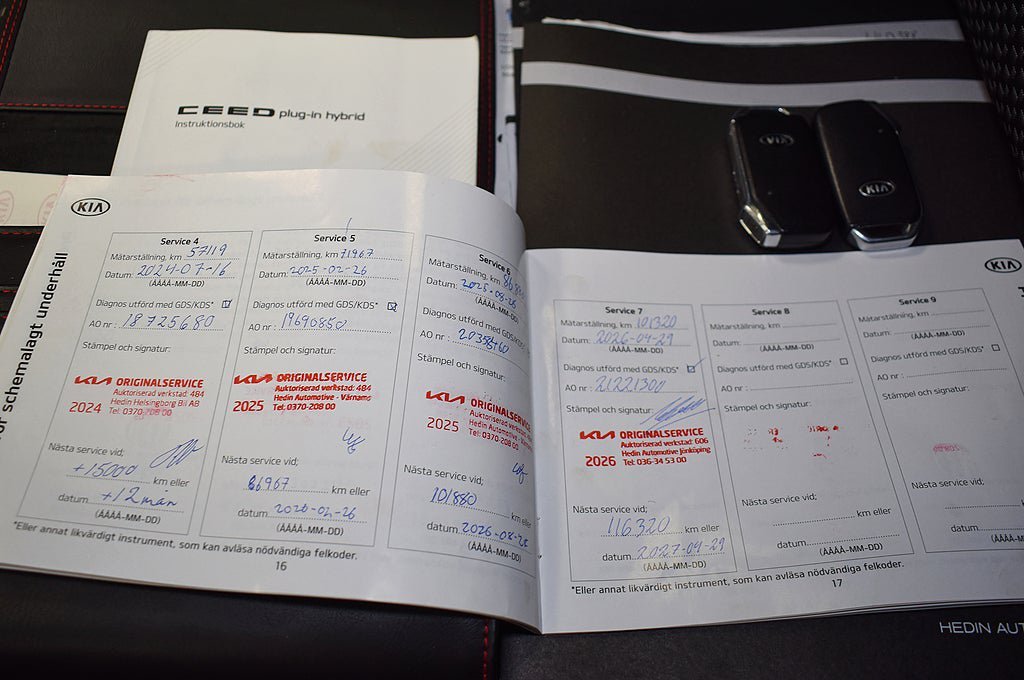 CEED plug-in hybrid
Instruktionsbok
KIA
KIA
KIA
schemalagt underhåll
Service 4
Mätarställning, km 57119
Datum: 2024-07-16
(ÅÅÅÅ-MM-DD)
Diagnos utförd med GDS/KDS*
AO nr: 18725680
Stämpel och signatur:
KIA ORIGINALSERVICE
Auktoriserad verkstad: 484
Hedin Helsingborg Bil AB
2024 Tel: 0370-208 00
Nästa service vid;
+15000 km eller
datum +12 mån
(ÅÅÅÅ-MM-DD)
Service 5
Mätarställning, km 71967
Datum: 2025-02-26
(ÅÅÅÅ-MM-DD)
Diagnos utförd med GDS/KDS*
AO nr: 19690850
Stämpel och signatur:
KIA ORIGINALSERVICE
Auktoriserad verkstad: 484
Hedin Automotive - Värnamo
2025 Tel: 0370-208 00
Nästa service vid;
86967 km eller
datum 2026-02-26
(ÅÅÅÅ-MM-DD)
Service 6
Mätarställning, km
Datum: 2025-08-26
(ÅÅÅÅ-MM-DD)
Diagnos utförd med GDS/KDS*
AO nr:
Stämpel och signatur:
KIA ORIGINALSERVICE
Auktoriserad verkstad: 484
Hedin Automotive
2025 Tel: 0370-208 00
Nästa service vid;
101880 km eller
datum 2026-08-
(ÅÅÅÅ-MM-DD)
*Eller annat likvärdigt instrument, som kan avläsa nödvändiga felkoder.
16
KIA
Service 7
Mätarställning, km 101320
Datum: 2026-04-29
(ÅÅÅÅ-MM-DD)
Diagnos utförd med GDS/KDS*
AO nr: 21221300
Stämpel och signatur:
KIA ORIGINALSERVICE
Auktoriserad verkstad: 606
Hedin Automotive Jönköping
2026 Tel: 036-34 53 00
Nästa service vid;
116320 km eller
datum 2027-04-29
(ÅÅÅÅ-MM-DD)
Service 8
Mätarställning, km
Datum:
(ÅÅÅÅ-MM-DD)
Diagnos utförd med GDS/KDS*
AO nr:
Stämpel och signatur:
Nästa service vid;
km eller
datum
(ÅÅÅÅ-MM-DD)
Service 9
Mätarställning, km
Datum:
(ÅÅÅÅ-MM-DD)
Diagnos utförd med GDS/KDS*
AO nr:
Stämpel och signatur:
Nästa service vid;
km
datum
(ÅÅÅÅ-MM-DD)
*Eller annat likvärdigt instrument, som kan avläsa nödvändiga felkoder.
17
HEDIN AUT